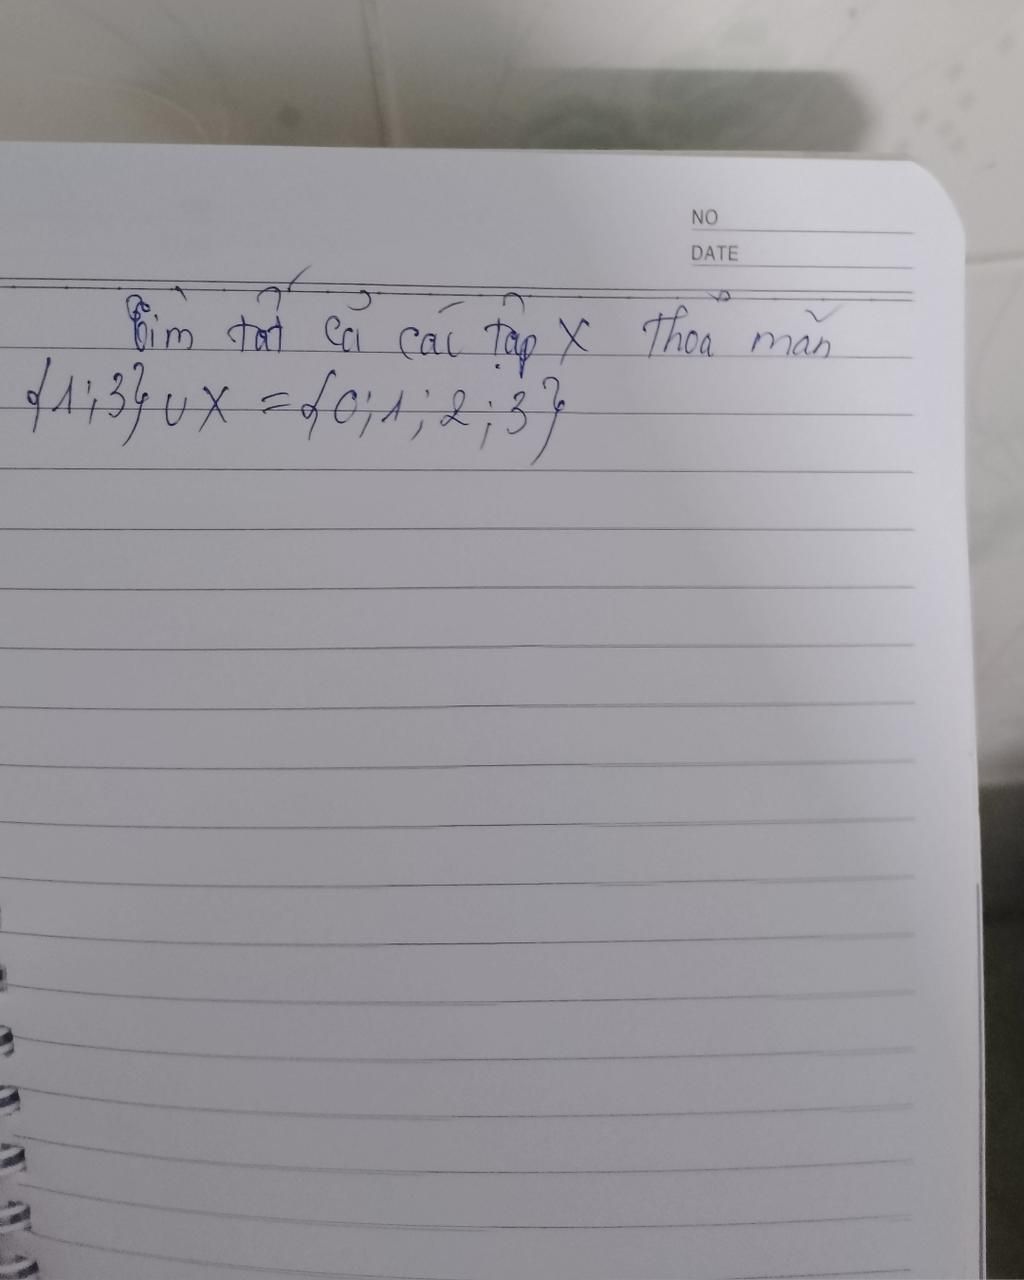 NO
DATE
Tìm tất cả các tập X thoả mãn
{1;3} ∪ X = {0;1;2;3}